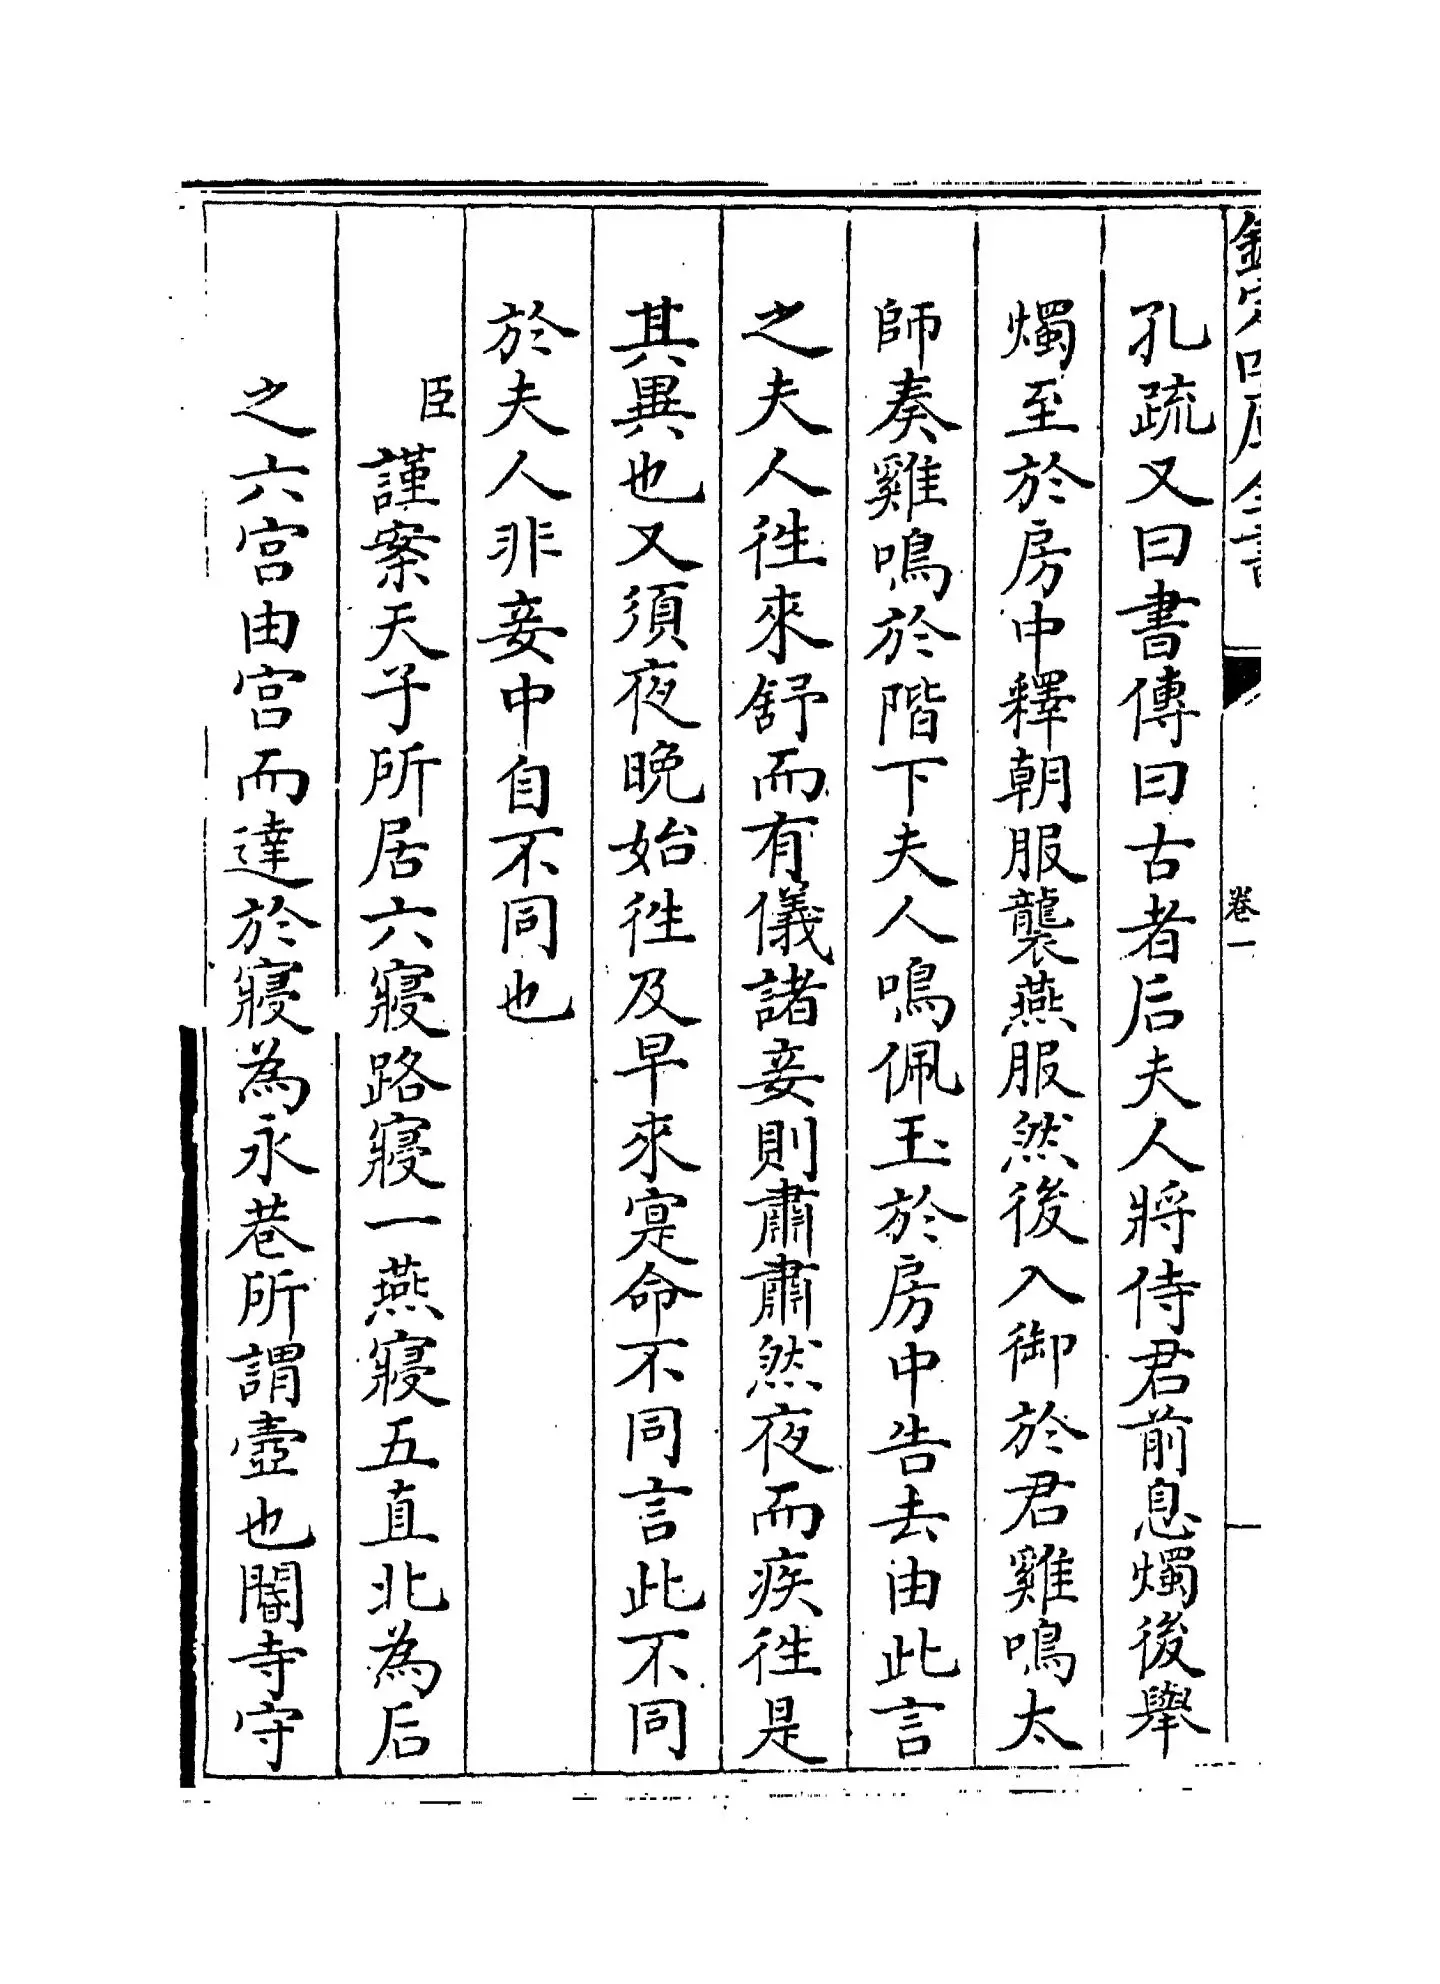 欽定四庫全書
卷一
孔疏又曰書傳曰古者后夫人將侍君前息燭後舉
燭至於房中釋朝服襲燕服然後入御於君雞鳴太
師奏雞鳴於階下夫人鳴佩玉於房中告去由此言
之夫人徃來舒而有儀諸妾則肅肅然夜而疾徃是
其異也又須夜晚始徃及早來寔命不同言此不同
於夫人非妾中自不同也
臣謹案天子所居六寢路寢一燕寢五直北為后
之六宫由宫而達於寢為永巷所謂壼也閽寺守